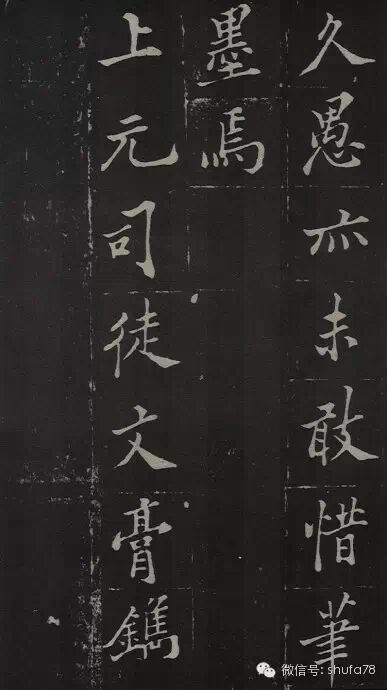 久愚亦未敢惜筆
墨焉
上元司徒文膏鐫
微信号: shufa78